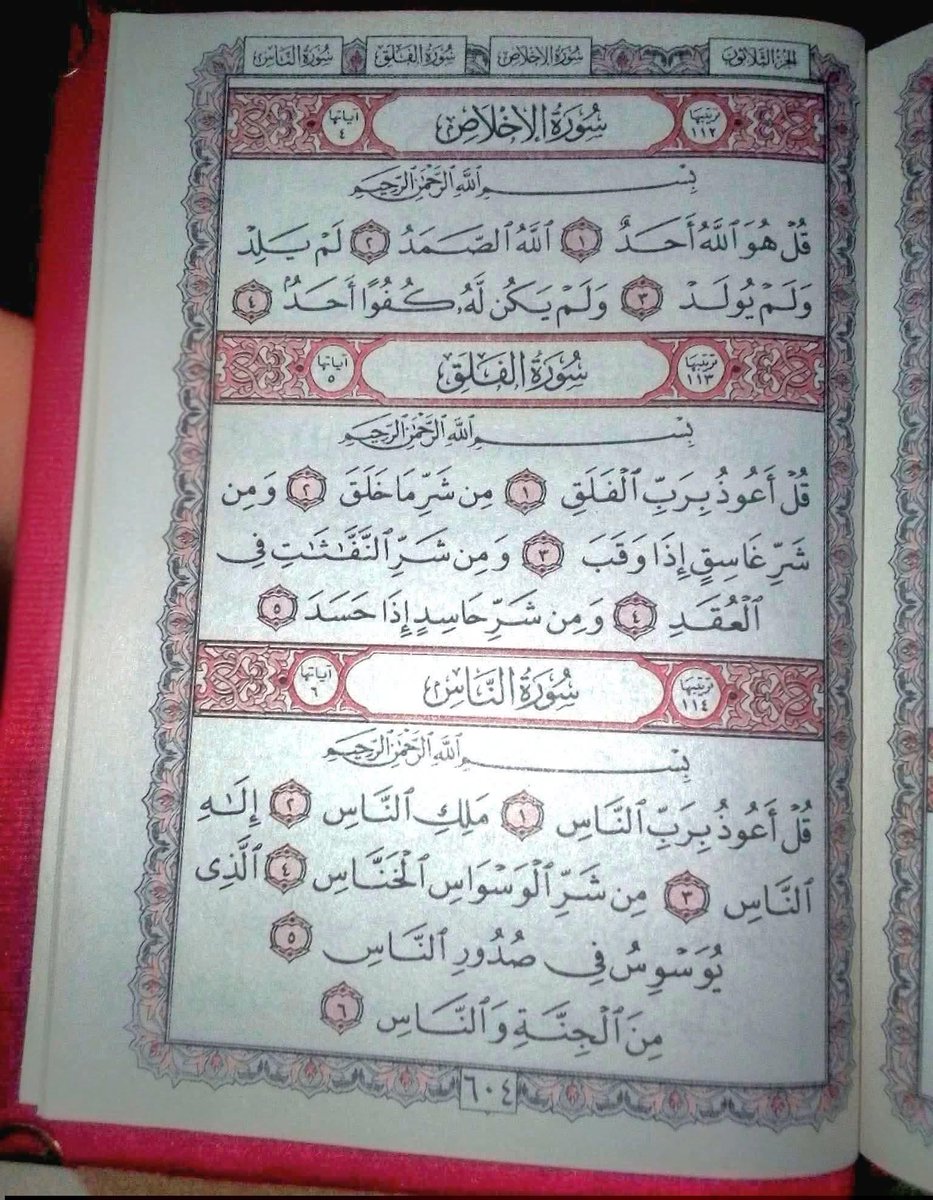 الجزء الثلاثون سورة الإخلاص سورة الفلق سورة الناس
ترتيبها ١١٢ سورة الإخلاص آياتها ٤
بِسْمِ ٱللَّهِ ٱلرَّحْمَٰنِ ٱلرَّحِيمِ
قُلْ هُوَ ٱللَّهُ أَحَدٌ ١ ٱللَّهُ ٱلصَّمَدُ ٢ لَمْ يَلِدْ
وَلَمْ يُولَدْ ٣ وَلَمْ يَكُن لَّهُۥ كُفُوًا أَحَدٌۢ ٤
ترتيبها ١١٣ سورة الفلق آياتها ٥
بِسْمِ ٱللَّهِ ٱلرَّحْمَٰنِ ٱلرَّحِيمِ
قُلْ أَعُوذُ بِرَبِّ ٱلْفَلَقِ ١ مِن شَرِّ مَا خَلَقَ ٢ وَمِن
شَرِّ غَاسِقٍ إِذَا وَقَبَ ٣ وَمِن شَرِّ ٱلنَّفَّٰثَٰتِ فِى
ٱلْعُقَدِ ٤ وَمِن شَرِّ حَاسِدٍ إِذَا حَسَدَ ٥
ترتيبها ١١٤ سورة الناس آياتها ٦
بِسْمِ ٱللَّهِ ٱلرَّحْمَٰنِ ٱلرَّحِيمِ
قُلْ أَعُوذُ بِرَبِّ ٱلنَّاسِ ١ مَلِكِ ٱلنَّاسِ ٢ إِلَٰهِ
ٱلنَّاسِ ٣ مِن شَرِّ ٱلْوَسْوَاسِ ٱلْخَنَّاسِ ٤ ٱلَّذِى
يُوَسْوِسُ فِى صُدُورِ ٱلنَّاسِ ٥
مِنَ ٱلْجِنَّةِ وَٱلنَّاسِ ٦
٦٠٤